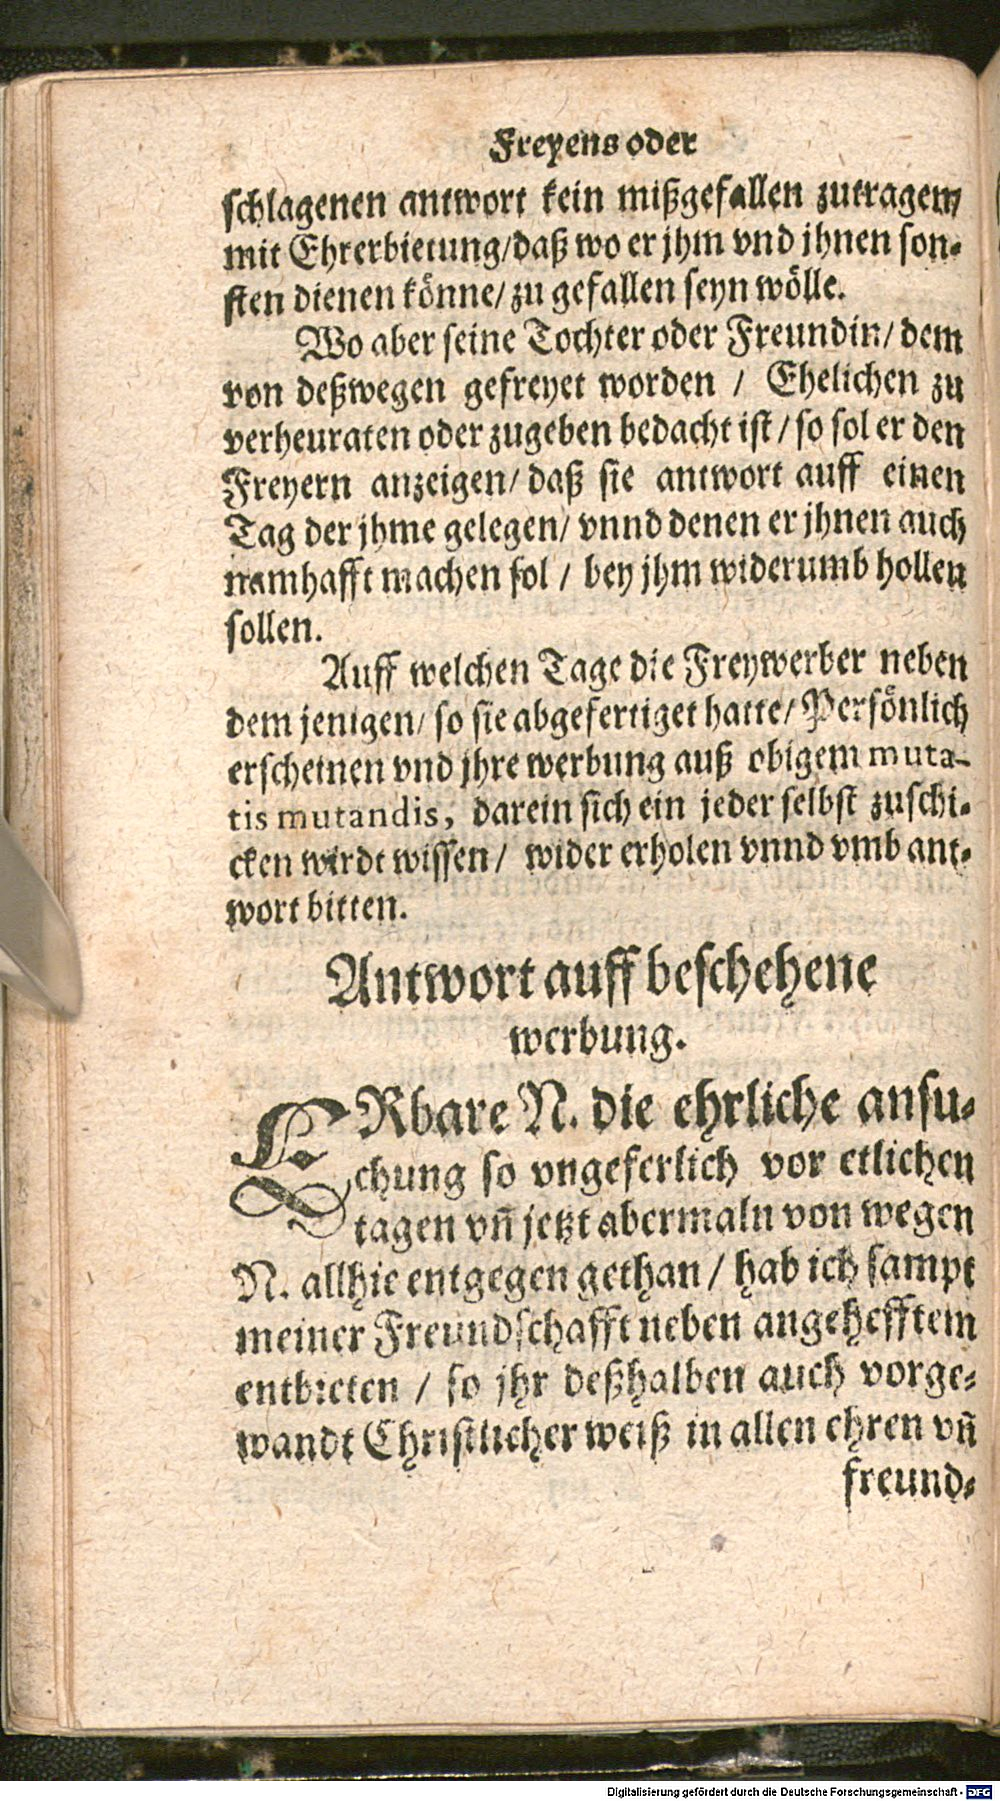 Freyens oder
schlagenen antwort kein mißgefallen zutragen/
mit Ehrerbietung/daß wo er jhm vnd jhnen son-
sten dienen könne/ zu gefallen seyn wölle.
Wo aber seine Tochter oder Freundin/ dem
von deßwegen gefreyet worden / Ehelichen zu
verheuraten oder zugeben bedacht ist / so sol er den
Freyern anzeigen/ daß sie antwort auff einen
Tag der jhme gelegen/ vnnd denen er jhnen auch
namhafft machen sol / bey jhm widerumb hollen
sollen.
Auff welchen Tage die Freywerber neben
dem jenigen/ so sie abgefertiget hatte/ Persönlich
erscheinen vnd jhre werbung auß obigem muta-
tis mutandis, darein sich ein jeder selbst zuschi-
cken wirdt wissen / wider erholen vnnd vmb ant-
wort bitten.
Antwort auff beschehene
werbung.
ERbare N. die ehrliche ansu-
chung so vngeferlich vor etlichen
tagen vñ jetzt abermaln von wegen
N. allhie entgegen gethan / hab ich sampt
meiner Freundschafft neben angehefftem
entbieten / so jhr deßhalben auch vorge-
wandt Christlicher weiß in allen ehren vñ
freund-
Digitalisierung gefördert durch die Deutsche Forschungsgemeinschaft - DFG